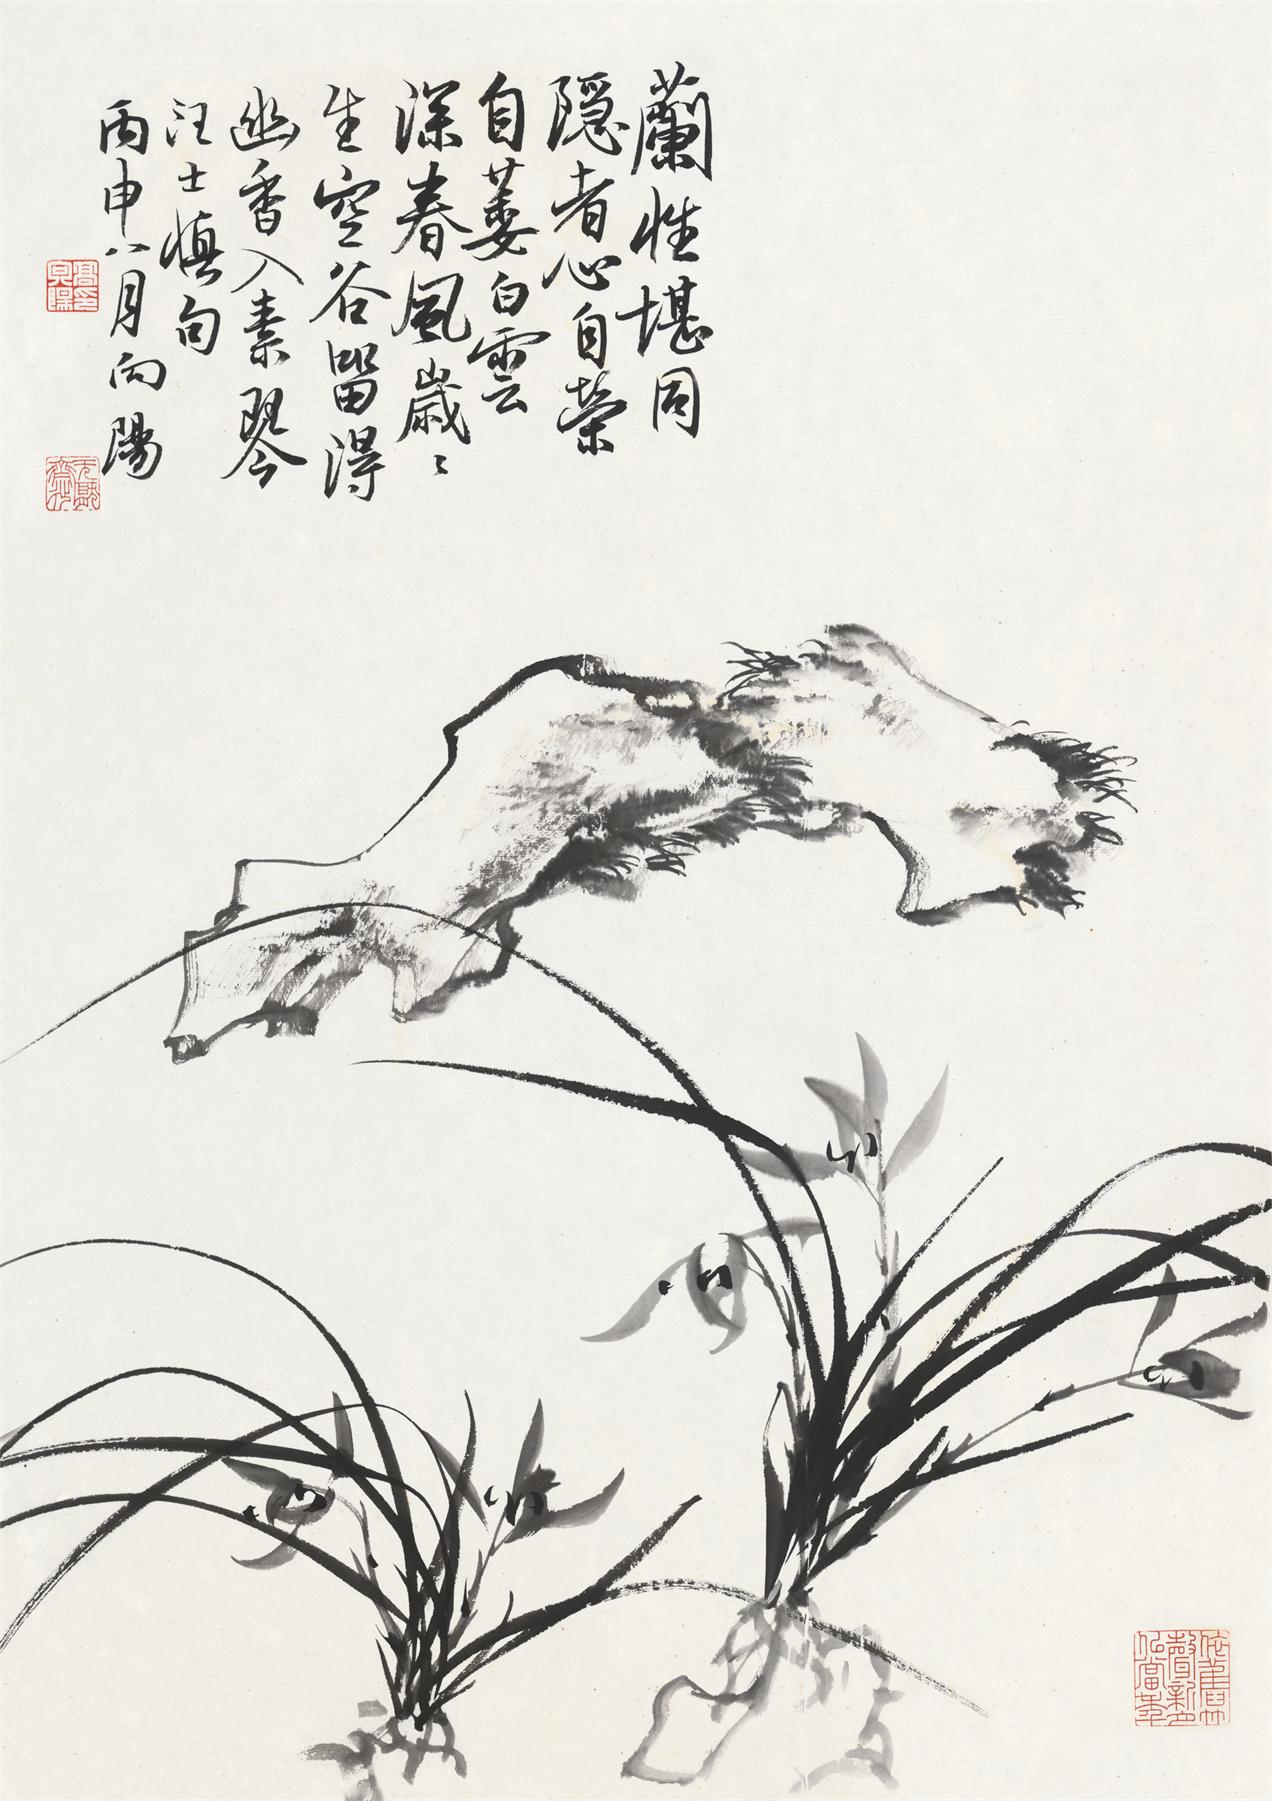 蘭性堪同
隱者心自榮
自萎白雲
深春風歲〻
生空谷留得
幽香入素琴
汪士慎句
丙申八月向陽